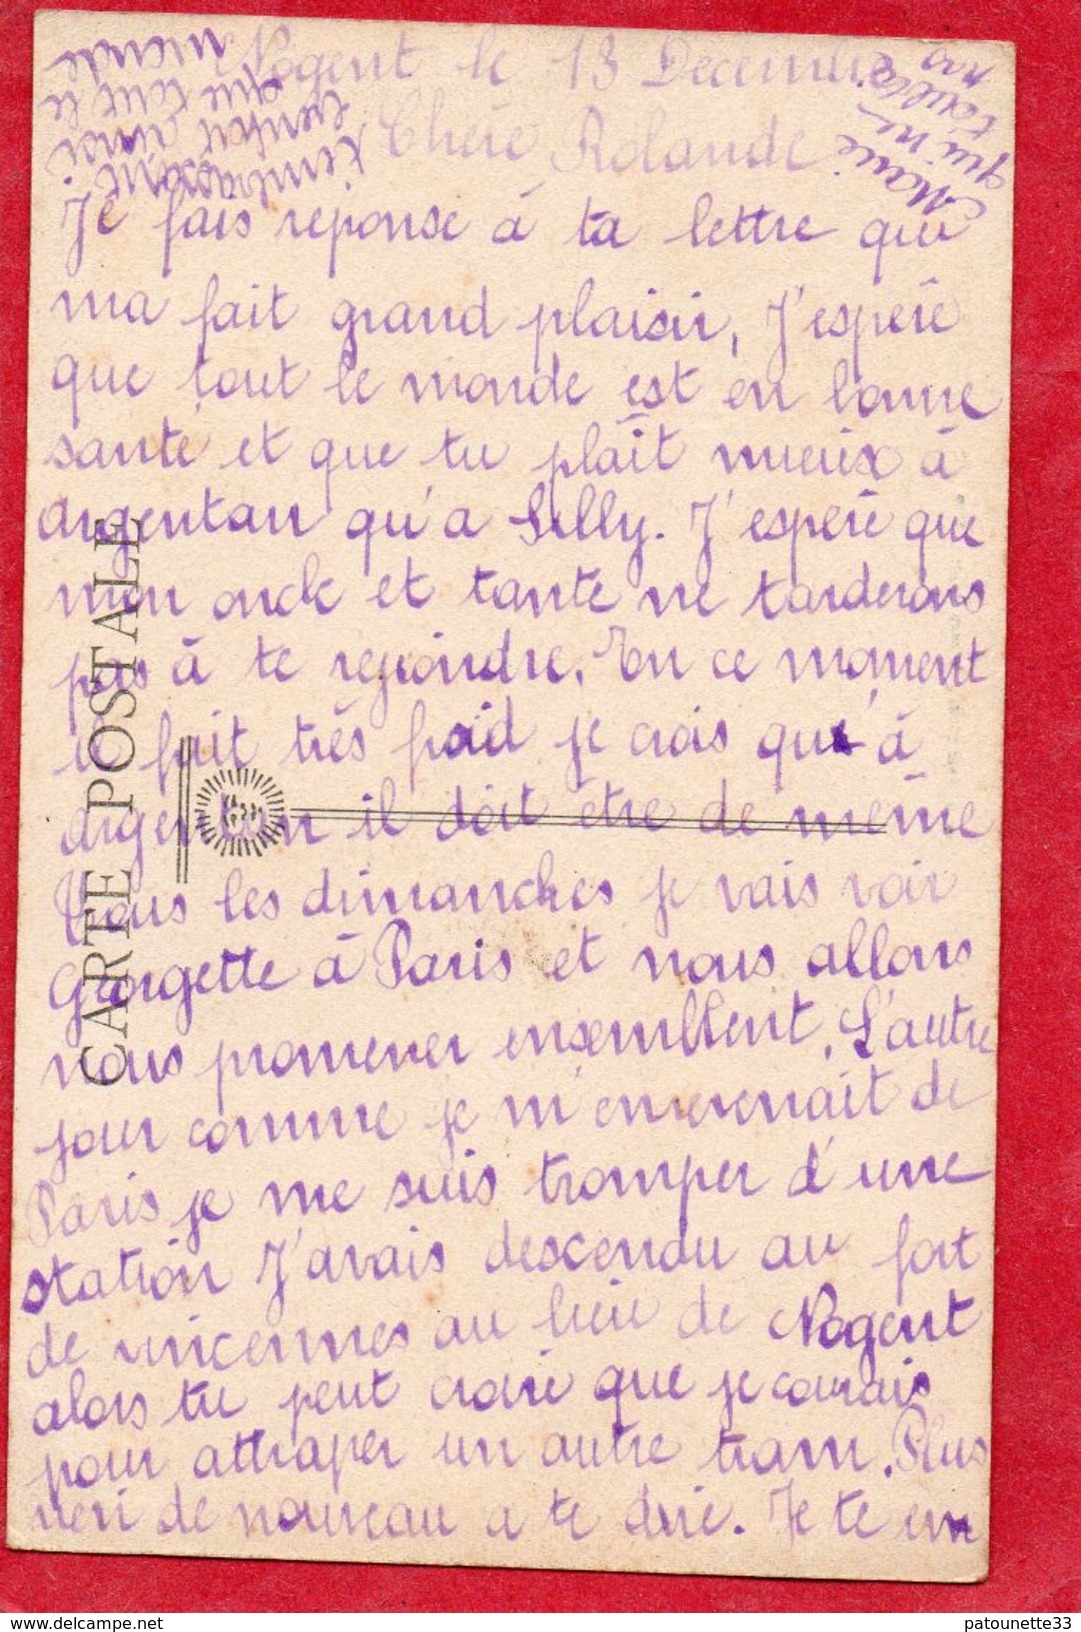 Nogent le 13 Decembre
Chère Rolande
Je fais reponse à ta lettre qui
ma fait grand plaisir, J'espère
que tout le monde est en bonne
santé et que tu plaît mieux à
Argentan qu'a Silly. J'espère que
mon oncle et tante ne tarderons
pas à te rejoindre. En ce moment
il fait très froid je crois qu'à
argentan il doit être de même
Tous les dimanches je vais voir
Georgette à Paris et nous allons
nous promener ensemblent. L'autre
jour comme je m'enrevenait de
Paris je me suis tromper d'une
station J'avais descendu au fort
de vincennes au lieu de Nogent
alors tu peut croire que je courais
pour attraper un autre tram. Plus
rien de nouveau a te dire. Je te em
t'embrassant
bien fort ainsi
que tout le
monde
Marie
qui ne
t'oublie
pas
CARTE POSTALE
patounette33